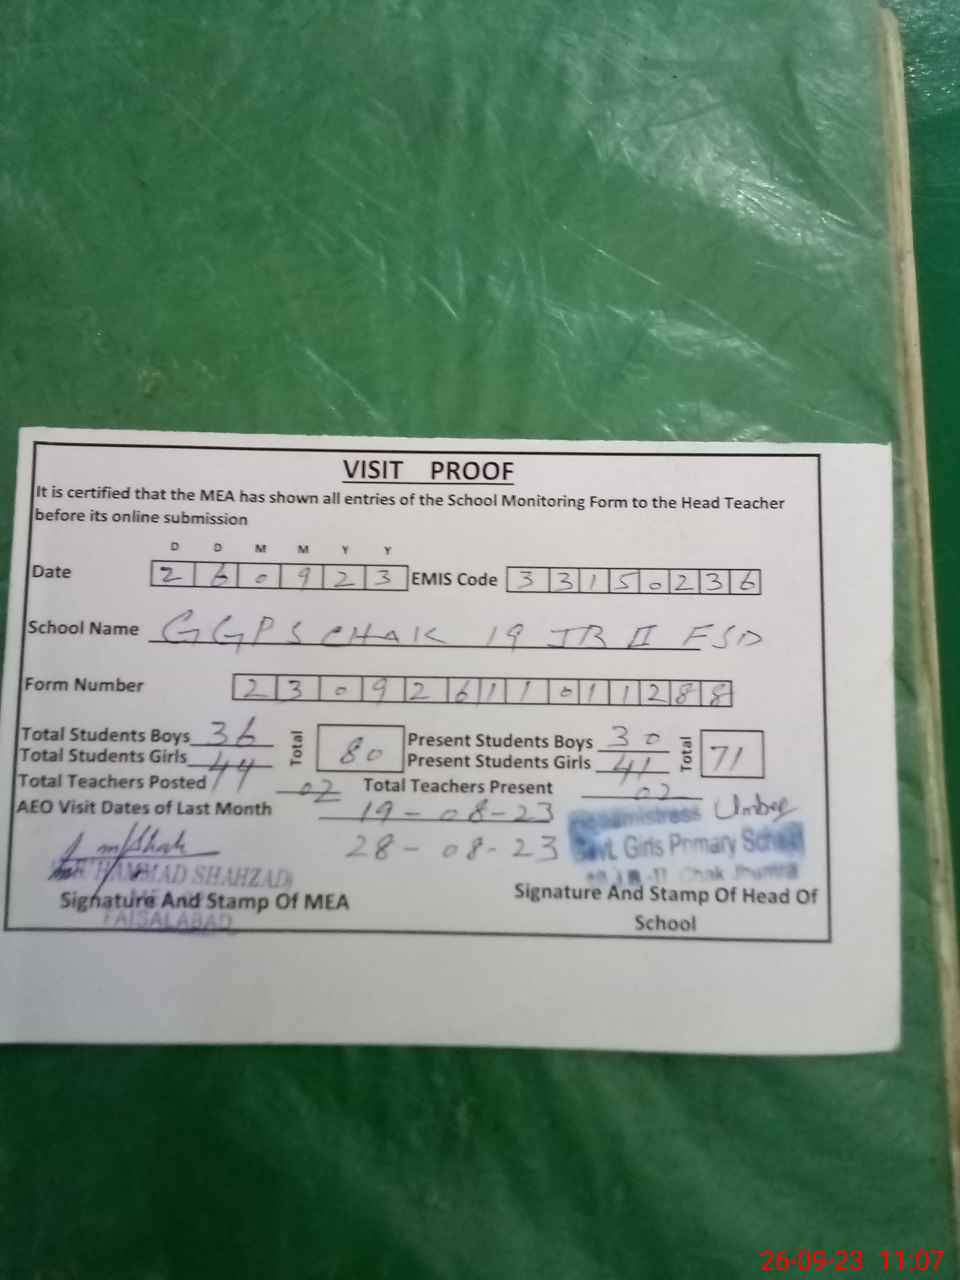 VISIT PROOF
It is certified that the MEA has shown all entries of the School Monitoring Form to the Head Teacher
before its online submission
D D M M Y Y
Date 2 6 0 9 2 3 EMIS Code 3 3 1 5 0 2 3 6
School Name GGPS CHAK 19 JB II FSD
Form Number 2 3 0 9 2 6 1 1 0 1 1 2 8 8
Total Students Boys 36 Total 80 Present Students Boys 30 Total 71
Total Students Girls 44 Present Students Girls 41
Total Teachers Posted 02 Total Teachers Present 02
AEO Visit Dates of Last Month 19-08-23
28-08-23
Headmistress
Govt. Girls Primary School
Chak Jhumra
MUHAMMAD SHAHZAD
Signature And Stamp Of MEA
FAISALABAD
Signature And Stamp Of Head Of
School
26-09-23 11:07